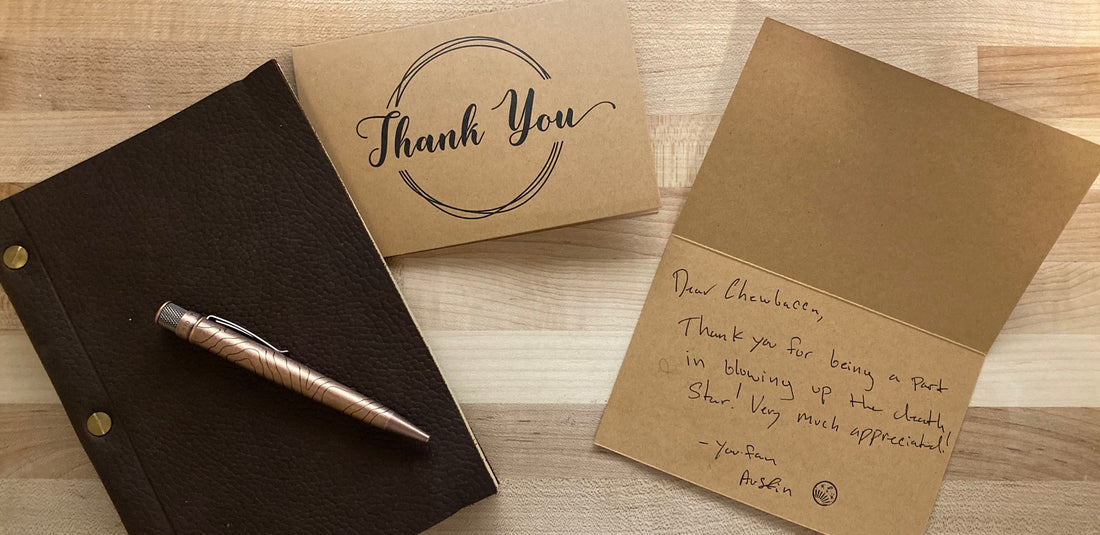 Thank You
Dear Chewbacca,
Thank you for being a part
in blowing up the death
Star! Very much appreciated!
- Your fan
Austin